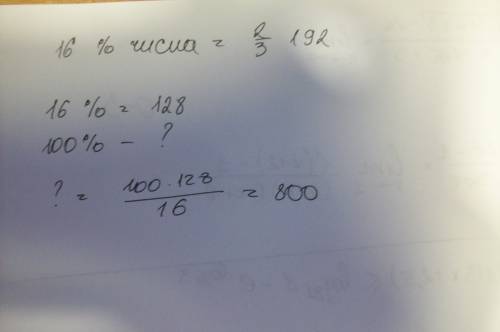 16 % числа = 2/3 192
16 % = 128
100% - ?
? = 100 · 128 / 16 = 800